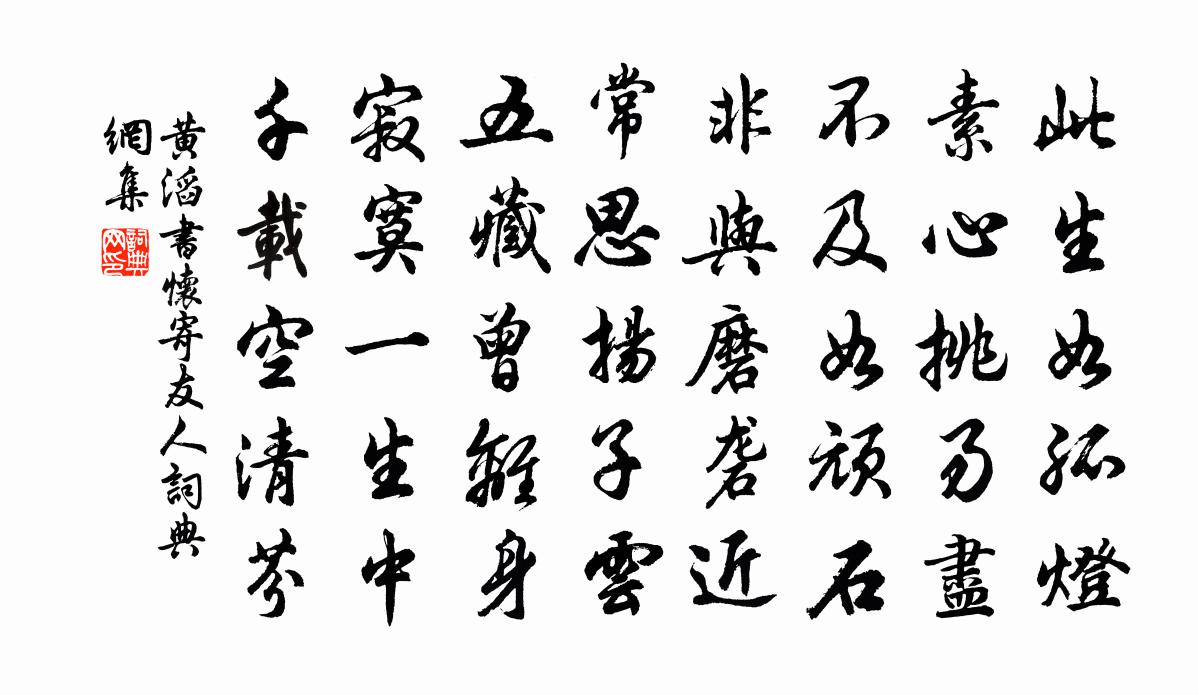 此生如孤燈
素心挑易盡
不及如頑石
非與磨礲近
常思揚子雲
五藏曾離身
寂寞一生中
千載空清芬
黃滔書懷寄友人詞典
網集
詞典
网印